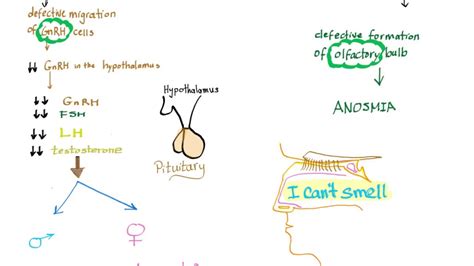 defective migration
of GnRH cells
↓↓ GnRH in the hypothalamus
↓↓ GnRH
↓↓ FSH
↓↓ LH
↓↓ testosterone
Hypothalamus
Pituitary
defective formation
of olfactory bulb
ANOSMIA
I can't smell